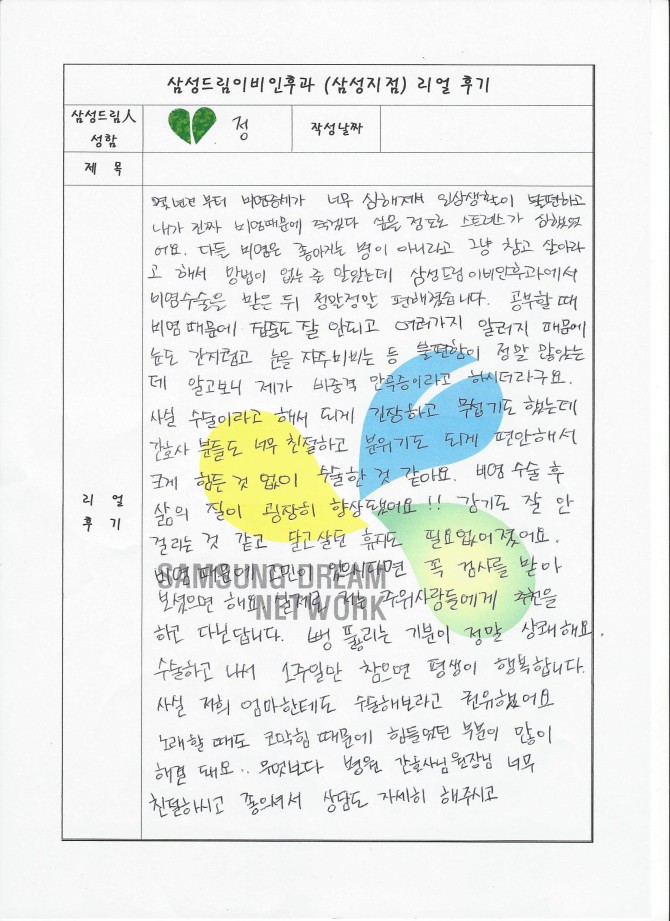 삼성드림이비인후과 (삼성지점) 리얼 후기
삼성드림人
성함
정
작성날짜
제 목
리 얼
후 기
부터 비염증세가 너무 심해져서 일상생활이 불편하고
내가 진짜 비염때문에 죽겠다 싶을 정도로 스트레스가 심했었
어요. 다들 비염은 좋아지는 병이 아니라고 그냥 참고 살아라
고 해서 방법이 없는 줄 알았는데 삼성드림이비인후과에서
비염수술을 받은 뒤 정말정말 편해졌습니다. 공부할 때
비염 때문에 집중도 잘 안되고 여러가지 알러지 때문에
눈도 간지럽고 눈을 자주비비는 등 불편함이 정말 많았는
데 알고보니 제가 비중격 만곡증이라고 하시더라구요.
사실 수술이라고 해서 되게 긴장하고 무섭기도 했는데
간호사 분들도 너무 친절하고 분위기도 되게 편안해서
크게 힘든 것 없이 수술한 것 같아요. 비염 수술 후
삶의 질이 굉장히 향상됐어요!! 감기도 잘 안
걸리는 것 같고 달고살던 휴지도 필요없어졌어요.
비염 때문에 고민이 있으시다면 꼭 검사를 받아
보셨으면 해요 실제로 저는 주위사람들에게 추천을
하고 다닌답니다. 뻥 뚫리는 기분이 정말 상쾌해요.
수술하고 나서 1주일만 참으면 평생이 행복합니다.
사실 저희 엄마한테도 수술해보라고 권유했어요
노래할 때도 코막힘 때문에 힘들었던 부분이 많이
해결 돼요.. 무엇보다 병원 간호사님 원장님 너무
친절하시고 좋으셔서 상담도 자세히 해주시고
SAMSUNG DREAM
NETWORK